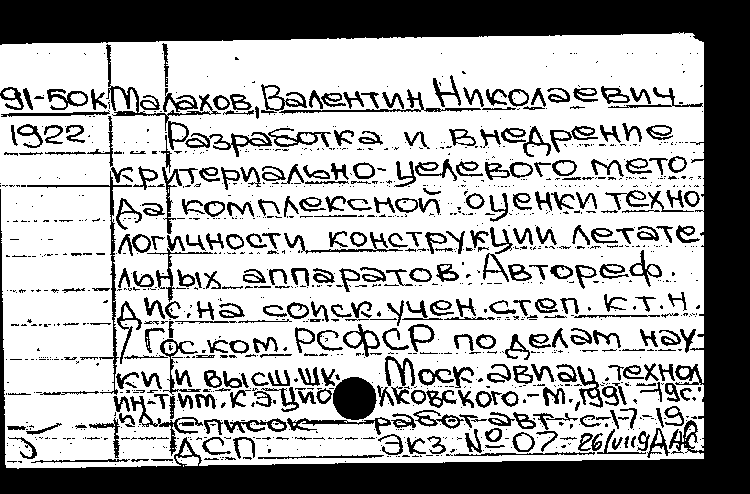 91-50к Малахов, Валентин Николаевич
1922 Разработка и внедрение
критериально-целевого мето-
да комплексной оценки техно-
логичности конструкции летате-
льных аппаратов: Автореф.
дис. на соиск. учен. степ. к.т.н.
/ Гос. ком. РСФСР по делам нау-
ки и высш. шк. Моск. авиац. технол
ин-т им. К.Э. Цио лковского. - М., 1991. - 19с.
Список работ авт.: с. 17-19.
ДСП. Экз. № 07